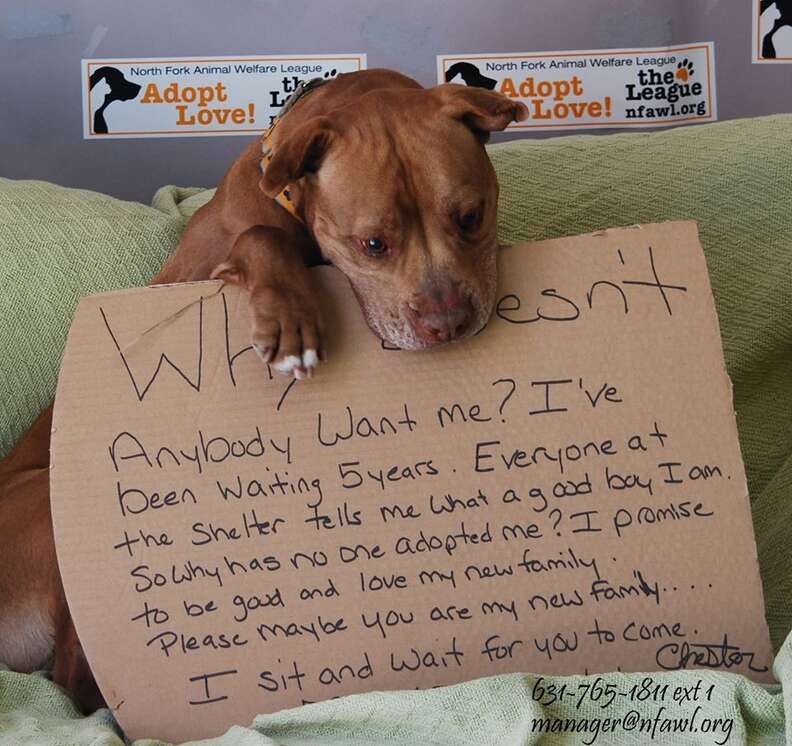 North Fork Animal Welfare League
Adopt
Love!
North Fork Animal Welfare League
Adopt the
Love! League
nfawl.org
Anybody Want me? I've
been waiting 5 years. Everyone at
the shelter tells me what a good boy I am.
So why has no one adopted me? I promise
to be good and love my new family.
Please maybe you are my new family....
I sit and wait for you to come.
Chester
631-765-1811 ext 1
manager@nfawl.org